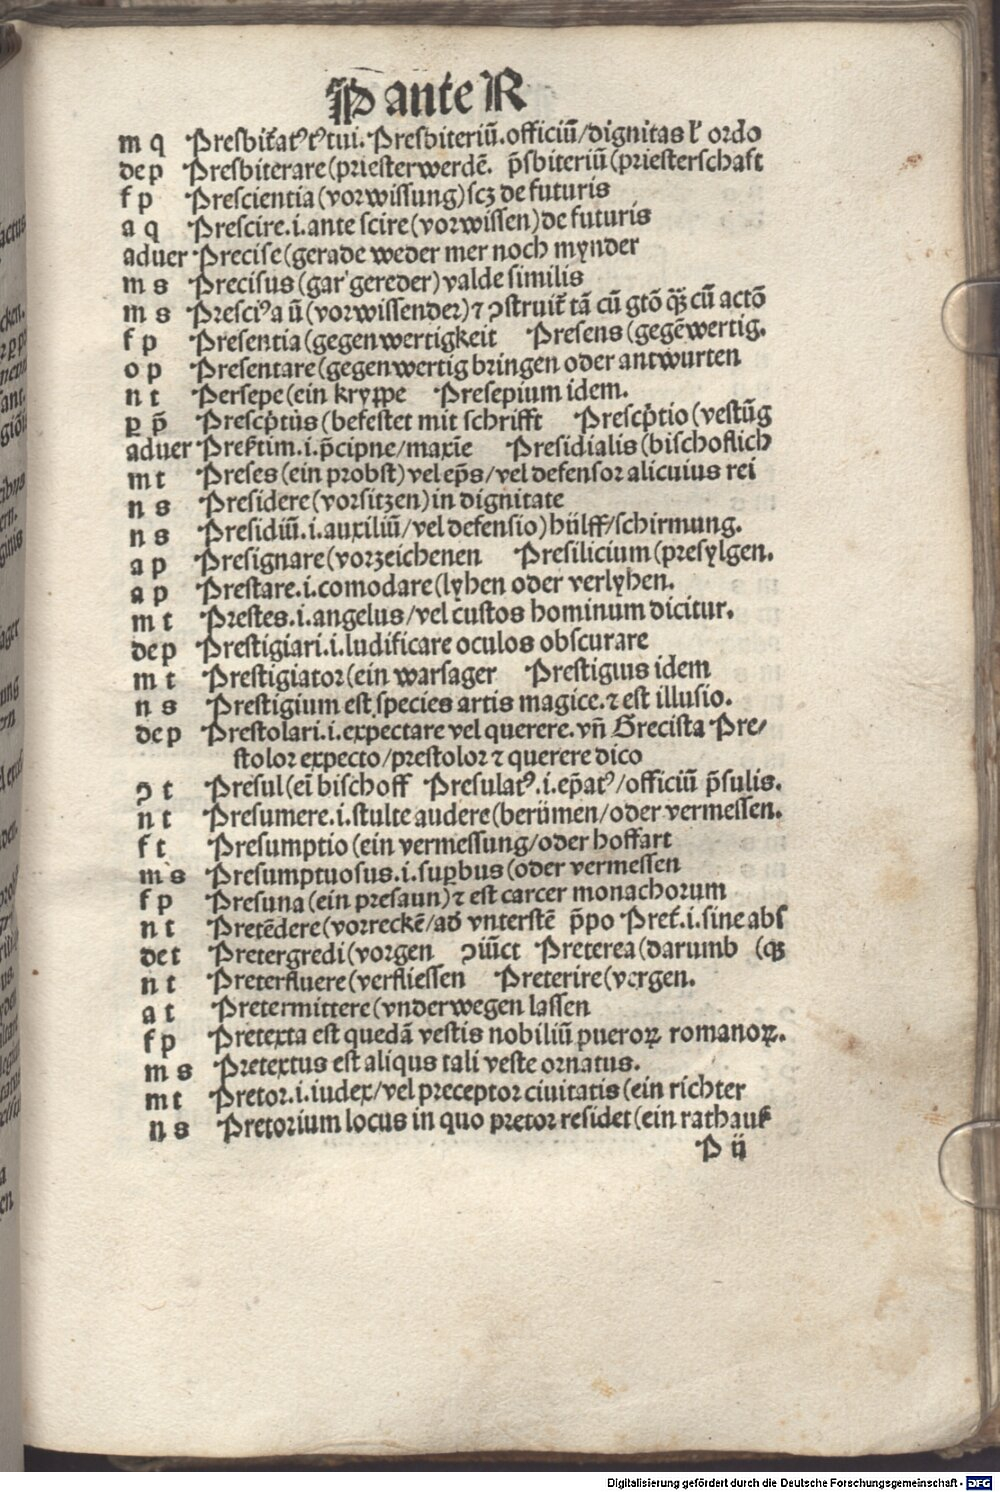 P ante R
m q Presbit̄atꝰ tꝰ tui. Presbiteriū. officiū/dignitas lʼ ordo
de p Presbiterare (priester werdē. p̄sbiteriū (priesterschaft
f p Prescientia (vorwissung) scꝫ de futuris
a q Prescire .i. ante scire (vorwissen) de futuris
aduer Precise (gerade weder mer noch mynder
m s Precisus (gar gereder) valde similis
m s Presciꝰ a ū (vorwissender) ⁊ ↄstruit̄ tā cū gtō qꝫ cū actō
f p Presentia (gegenwertigkeit Presens (gegēwertig.
o p Presentare (gegenwertig bringen oder antwurten
n t Persepe (ein kryppe Presepium idem.
ꝑ p̄ Prescp̄tus (befestet mit schrifft Prescp̄tio (vestūg
aduer Presertim .i. p̄cipue/maxīe Presidialis (bischoflich
m t Preses (ein probst) vel ep̄s/vel defensor alicuius rei
n s Presidere (vorsitzen) in dignitate
n s Presidiū .i. auxiliū/vel defensio) hülff/schirmung.
a p Presignare (vorzeichenen Presilicium (presylgen.
a p Prestare .i. comodare (lyhen oder verlyhen.
m t Prestes .i. angelus/vel custos hominum dicitur.
de p Prestigiari .i. ludificare oculos obscurare
m t Prestigiator (ein warsager Prestigius idem
n s Prestigium est species artis magice. ⁊ est illusio.
de p Prestolari .i. expectare vel querere. vn̄ Grecista Pre/
stolor expecto/prestolor ⁊ querere dico
ↄ t Presul (eī bischoff Presulatꝰ .i. ep̄atꝰ/officiū p̄sulis.
n t Presumere .i. stulte audere (berümen/oder vermessen.
f t Presumptio (ein vermessung/oder hoffart
m s Presumptuosus .i. suꝑbus (oder vermessen
f p Presuna (ein presaun) ⁊ est carcer monachorum
n t Pretēdere (vorreckē/ad̄ vnterstē p̄po Pret̄ .i. sine abs
de t Pretergredi (vorgen ↄiūct Preterea (darumb (qꝫ
n t Preterfluere (verfliessen Preterire (vergen.
a t Pretermittere (vnderwegen lassen
f p Pretexta est quedā vestis nobiliū pueroꝝ romanoꝝ.
m s Pretextus est aliqus tali veste ornatus.
m t Pretor .i. iudex/vel preceptor ciuitatis (ein richter
n s Pretorium locus in quo pretor residet (ein rathauß
P ij
Digitalisierung gefördert durch die Deutsche Forschungsgemeinschaft - DFG